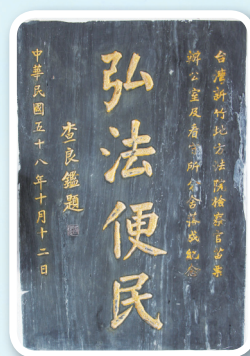 台灣新竹地方法院檢察官苗栗
辦公室及看守所宿舍落成紀念
弘法便民
查良鑑題
中華民國五十八年十月十二日